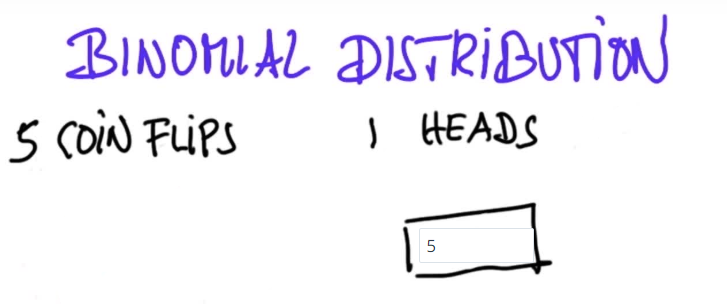 BINOMIAL DISTRIBUTION
5 COIN FLIPS 1 HEADS
5